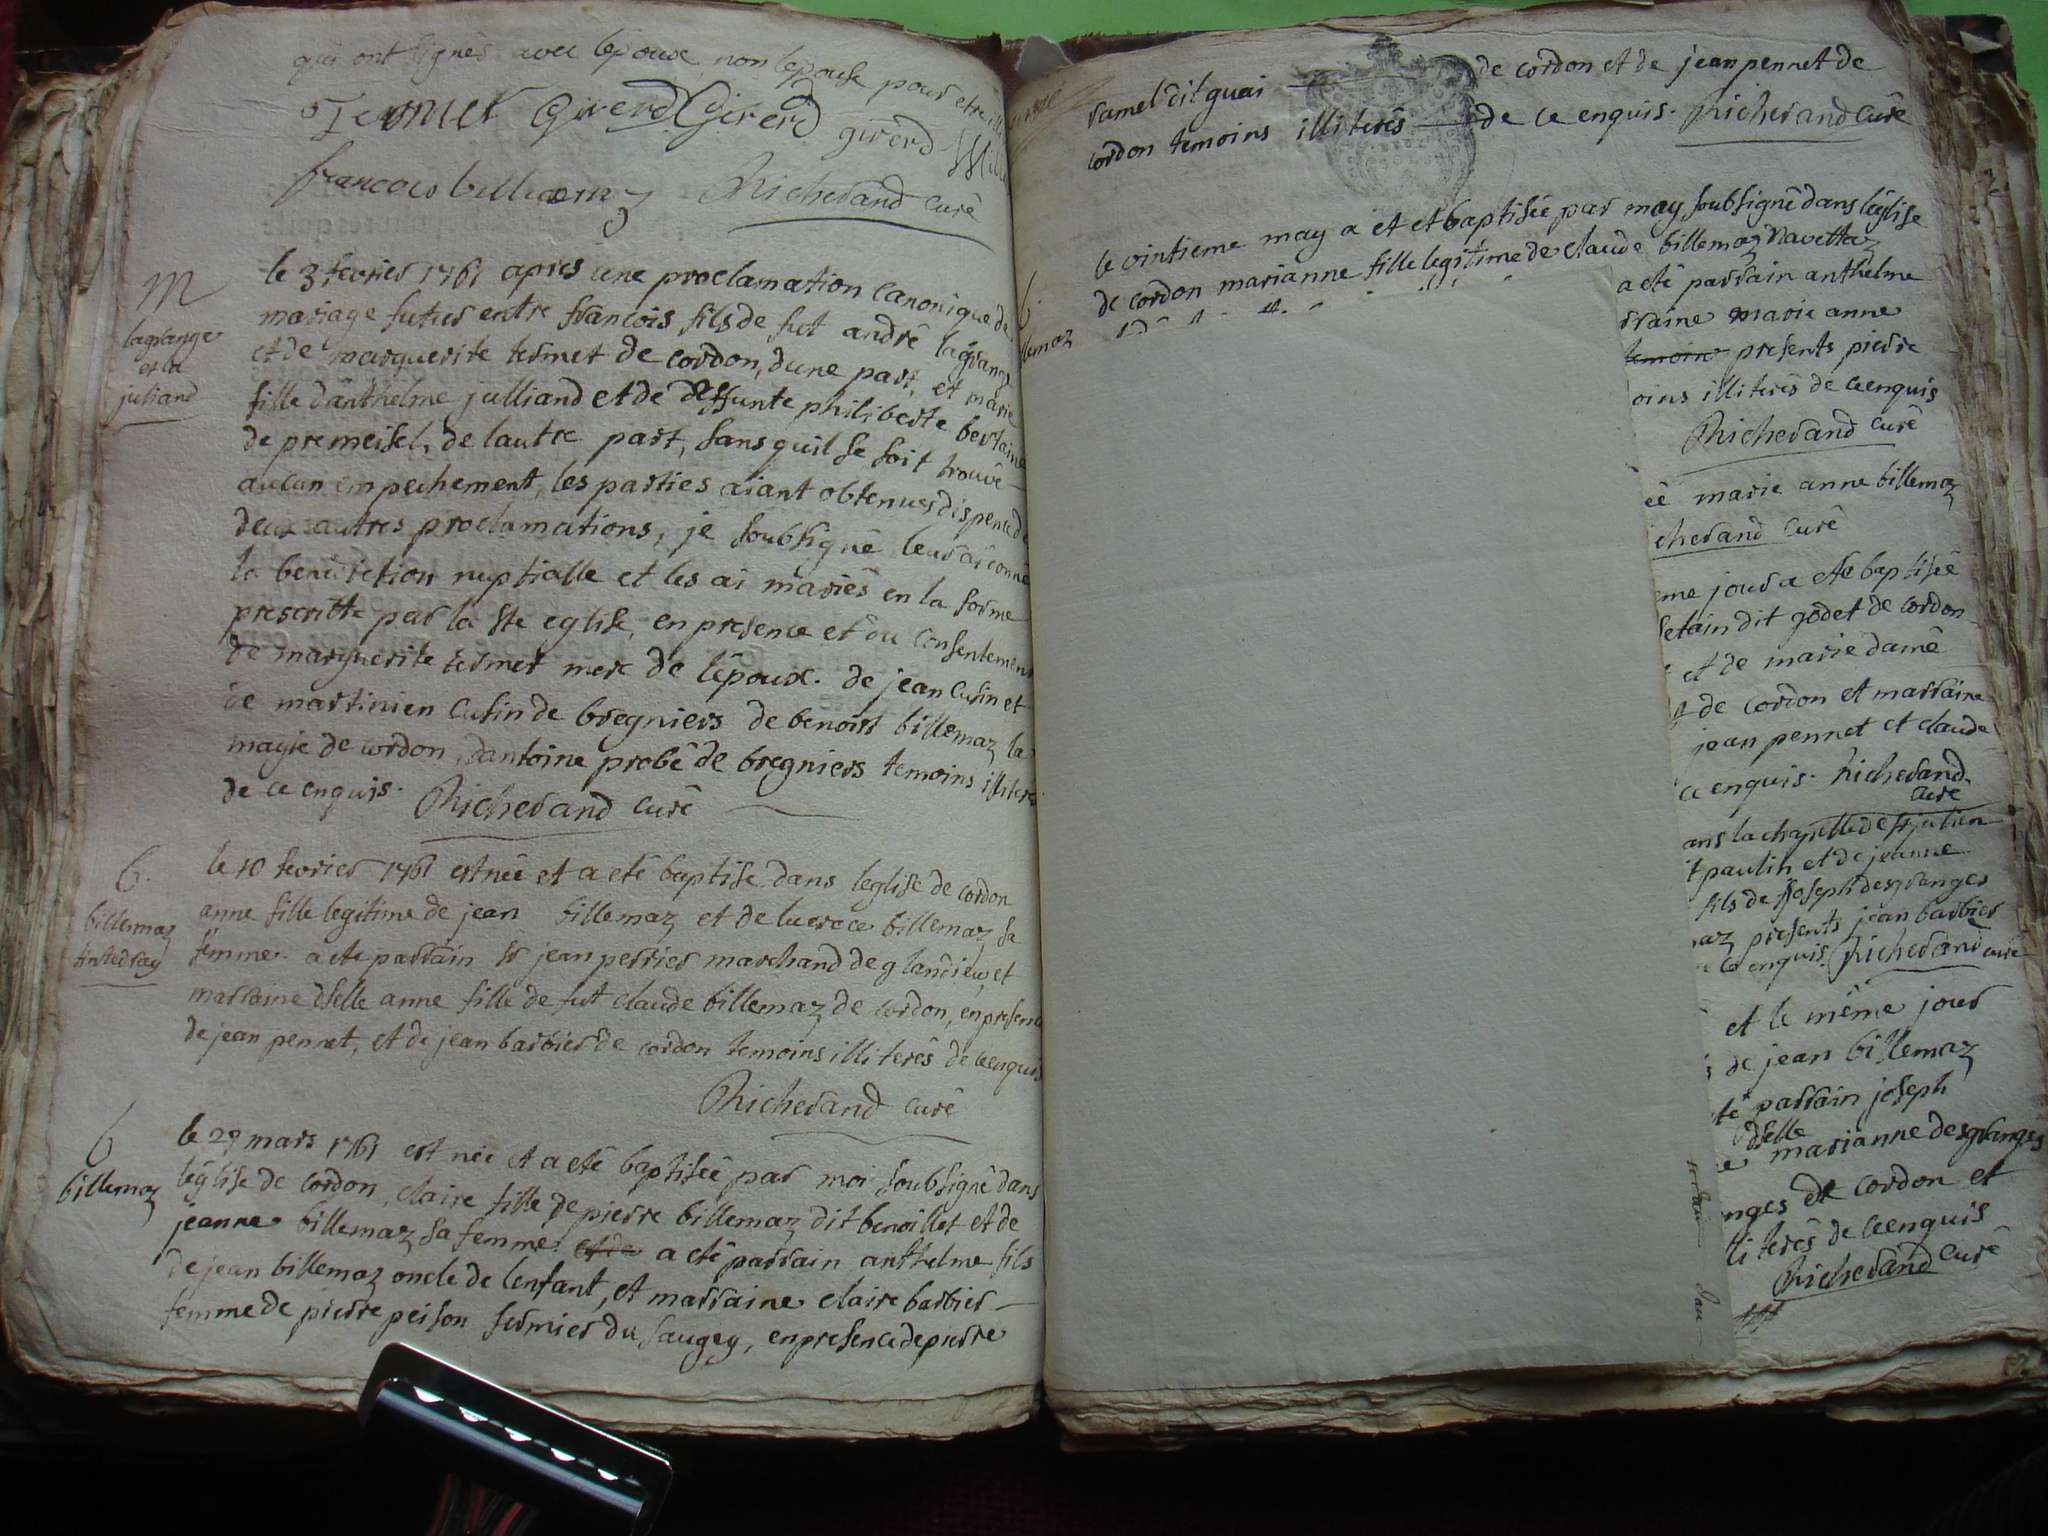 qui ont signés avec lépoux, non lepouse pour etre
Termet Girerd Girerd girerd
francois billiemaz Richerand curé
M
lagrange
et la
juliand
le 3 fevrier 1761 apres une proclamation canonique de
mariage futur entre francois fils de fut andré lagrange
et de marguerite termet de cordon, dune part, et marie
fille danthelme julliand et de deffunte philiberte bertaine
de premeisel, de lautre part, sans quil se soit trouvé
aucun empechement, les parties aiant obtenues dispence de
deux autres proclamations, je soubsigné leur ai donné
la benediction nuptialle et les ai mariés en la forme
prescritte par la ste eglise, en presence et du consentement
de marguerite termet mere de lépoux. de jean cusin et
de martinien cusin de bregniers de benoist billemaz la
magie de cordon, dantoine probé de bregniers temoins illiterés
de ce enquis. Richerand curé
B.
billemaz
tintedray
le 10 fevrier 1761 est née et a eté baptisé dans leglise de cordon
anne fille legitime de jean billemaz et de lucrece billemaz sa
femme. a eté parrain sr jean perrier marchand de glandieu, et
marraine dselle anne fille de fut claude billemaz de cordon, en presence
de jean pennet, et de jean barbier de cordon temoins illiterés de ce enquis
Richerand curé
B
billemaz
le 29 mars 1761 est née et a eté baptiséé par moi soubsigné dans
léglise de cordon, claire fille de pierre billemaz dit benoillet et de
jeanne billemaz sa femme. et de a eté parrain anthelme fils
de jean billemaz oncle de lenfant, et marraine claire barbier
femme de pierre peison fermier du saugey, en presence de pierre
ramel dit guai de cordon et de jean pennet de
cordon temoins illiterés de ce enquis. Richerand curé
B.
lemaz
le vintieme may a et et baptisée par moy soubsigné dans léglise
de cordon marianne fille legitime de claude billemaz navettaz
a eté parrain anthelme
rraine marie anne
temoins presents pierre
oins illiterés de ce enquis
Richerand curé
éé marie anne billemaz
cherand curé
eme jour a eté baptiséé
setain dit godet de cordon
et de marie damé
de cordon et marraine
jean pennet et claude
ce enquis. Richerand
curé
ans la chapelle de st julien
t paulin et de jeanne
fils de joseph desgranges
az presents jean barbier
ce enquis. Richerand curé
et le même jour
de jean billemaz
té parrain joseph
dselle
e marianne desgranges
nges de cordon et
literés de ce enquis
Richerand curé